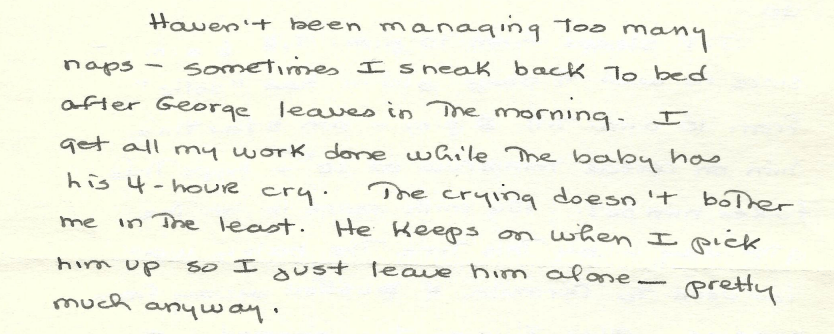 Haven't been managing too many
naps – sometimes I sneak back to bed
after George leaves in the morning. I
get all my work done while the baby has
his 4-hour cry. The crying doesn't bother
me in the least. He keeps on when I pick
him up so I just leave him alone — pretty
much anyway.